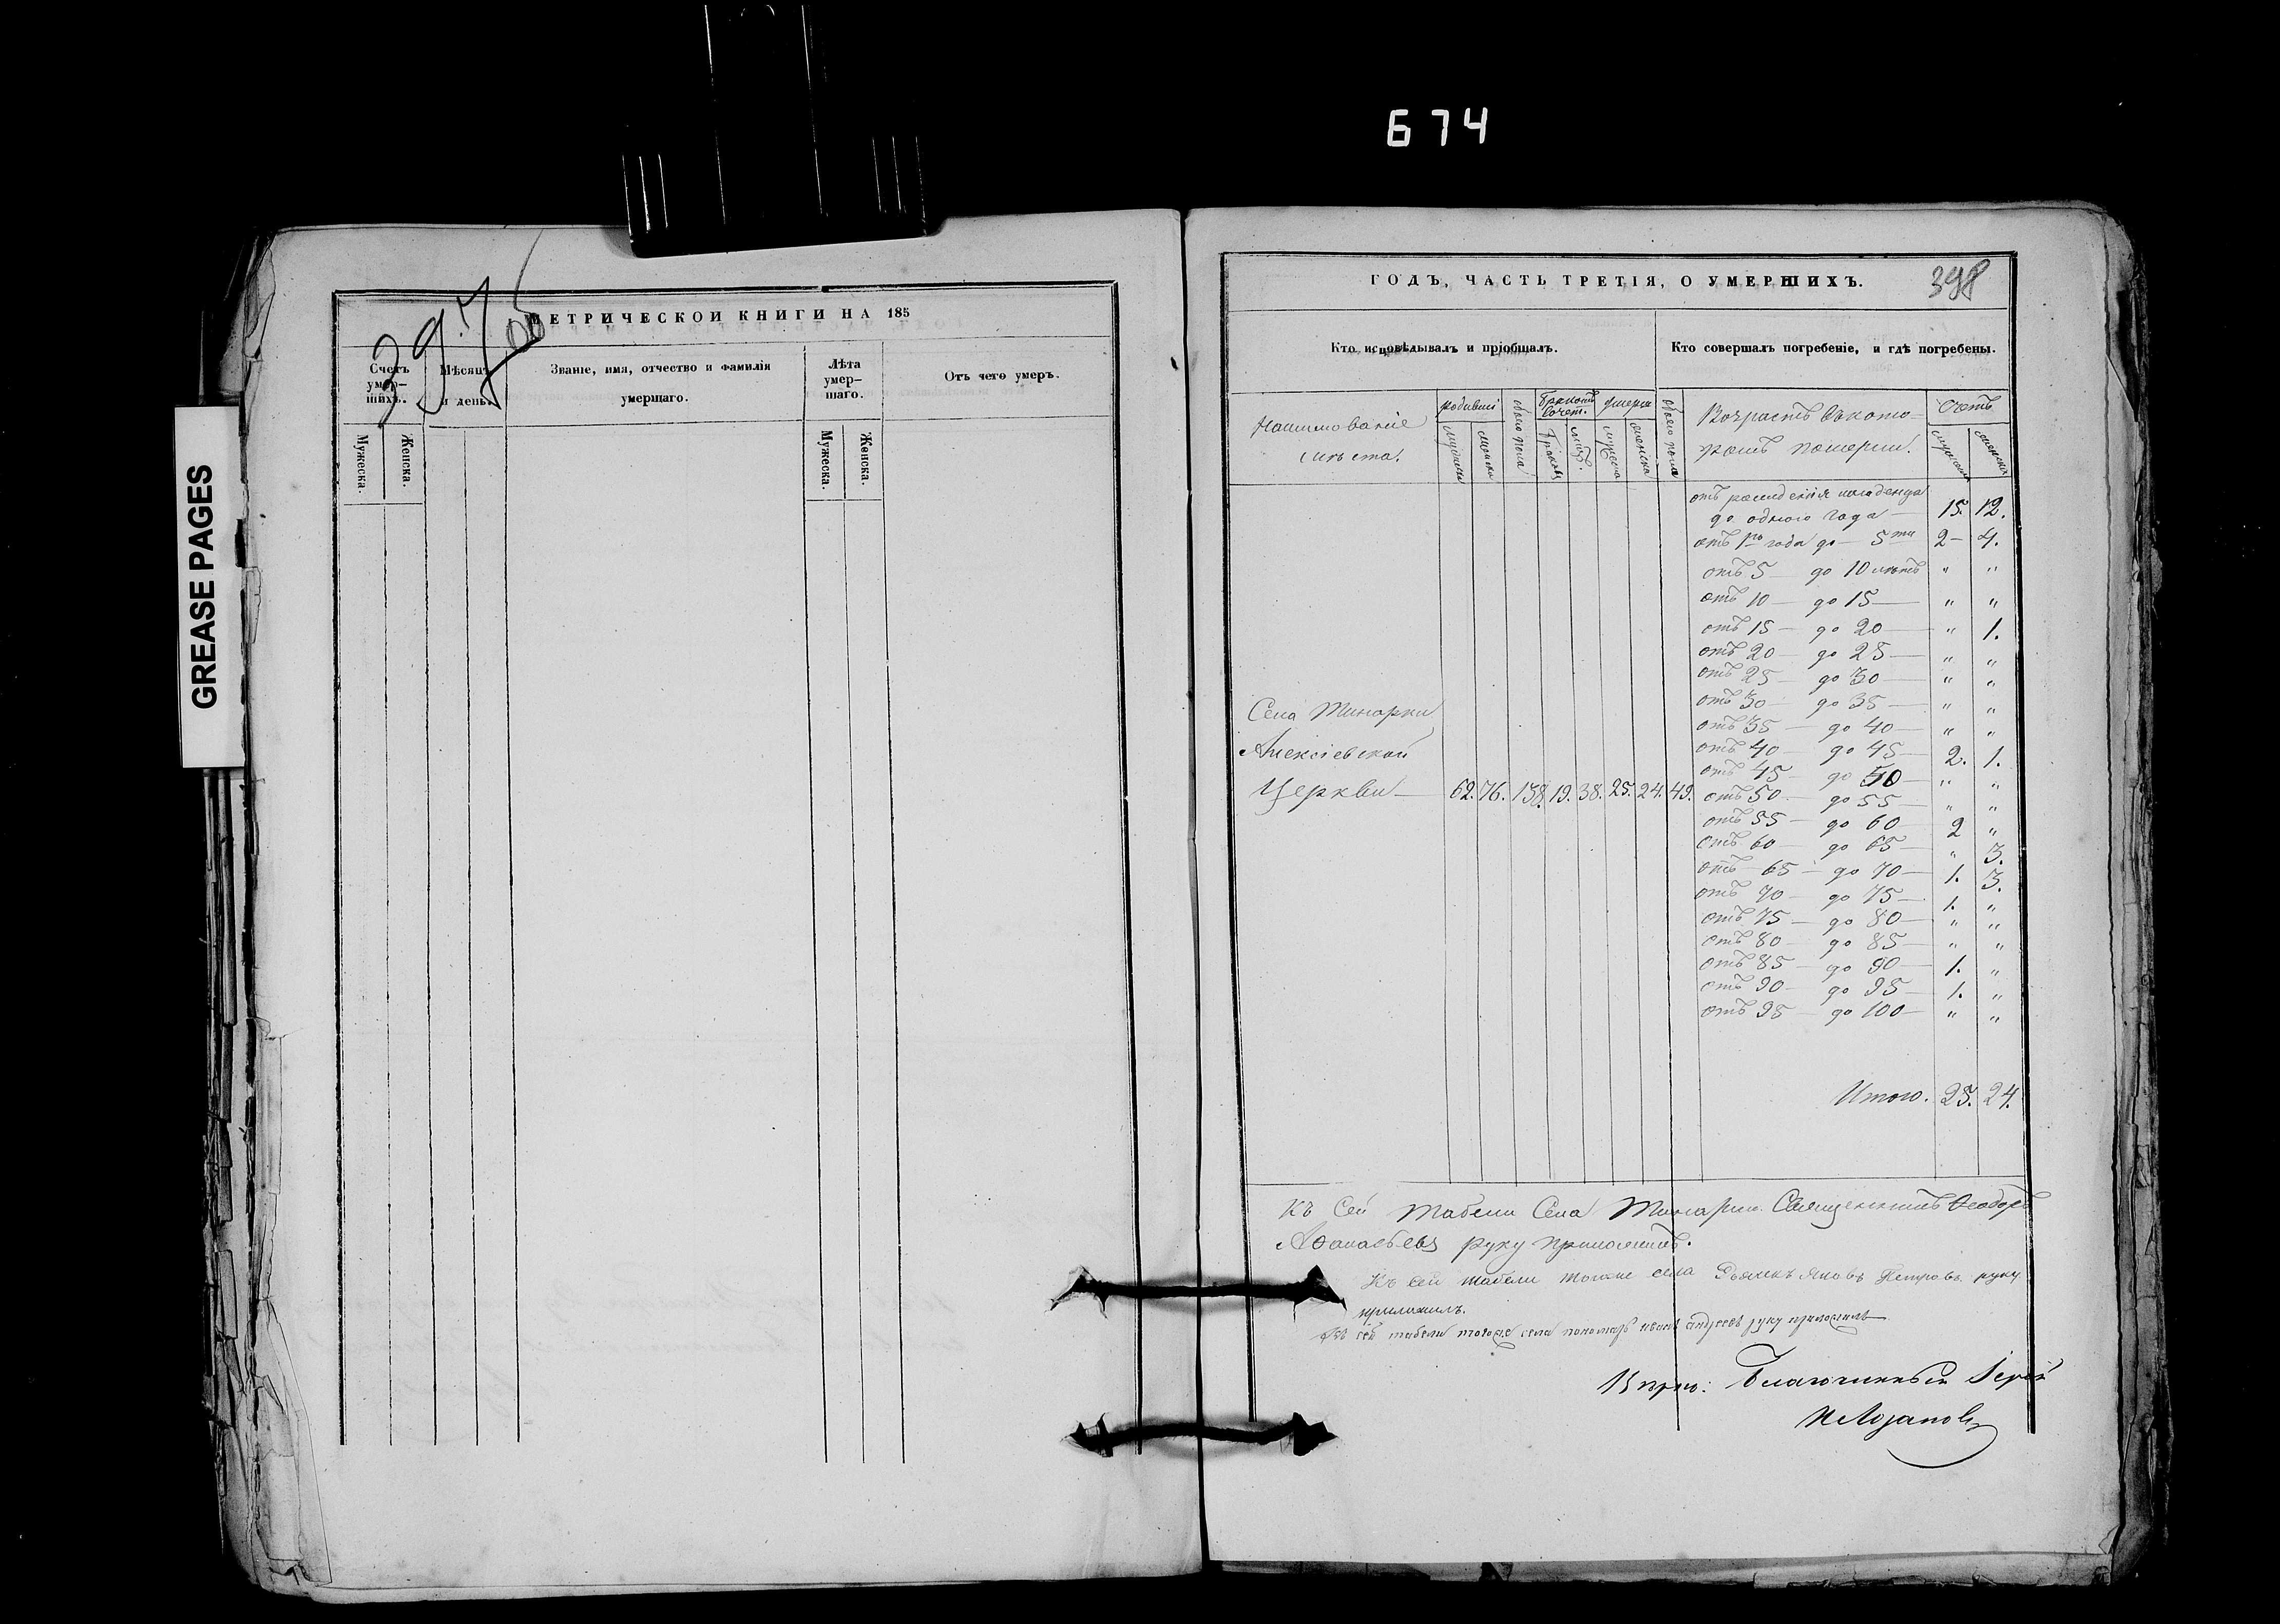 674
GREASE PAGES
МЕТРИЧЕСКОЙ КНИГИ НА 185
Счетъ умер-шихъ.
Мѣсяцъ и день.
Званіе, имя, отчество и фамилія умершаго.
Лѣта умер-шаго.
Отъ чего умеръ.
Мужеска.
Женска.
Мужеска.
Женска.
ГОДЪ, ЧАСТЬ ТРЕТІЯ, О УМЕРШИХЪ.
398
Кто исповѣдывалъ и пріобщалъ.
Кто совершалъ погребеніе, и гдѣ погребены.
Наименованіе
мѣста.
Возрастъ въ кото-
ромъ померли.
Счетъ
отъ рожденія младенца
до одного года — 15. 12.
отъ 1го года до — 5ти 2 — 4.
отъ 5 — до 10 лѣтъ " "
отъ 10 — до 15 — " "
отъ 15 — до 20 — " 1.
отъ 20 — до 25 — " "
отъ 25 — до 30 — " "
отъ 30 — до 35 — " "
отъ 35 — до 40 — " "
отъ 40 — до 45 — 2. 1.
отъ 45 — до 50 — " "
отъ 50 — до 55 — " "
отъ 55 — до 60 — 2 "
отъ 60 — до 65 — " 3.
отъ 65 — до 70 — 1. 3.
отъ 70 — до 75 — 1. "
отъ 75 — до 80 — " "
отъ 80 — до 85 — " "
отъ 85 — до 90 — 1. "
отъ 90 — до 95 — 1. "
отъ 95 — до 100 — " "
Итого. 25. 24.
Села
Алексіевской
Церкви — 62. 76. 138. 19. 38. 25. 24. 49.
Къ сей табели Села Священникъ Ѳеодоръ
Аѳанасьевъ руку приложилъ.
Къ сей табели тогоже села Дьячекъ Яковъ Петровъ руку
приложилъ.
Къ сей табели тогоже села пономарь Иванъ Андреевъ руку приложилъ
Благочинный Іерей